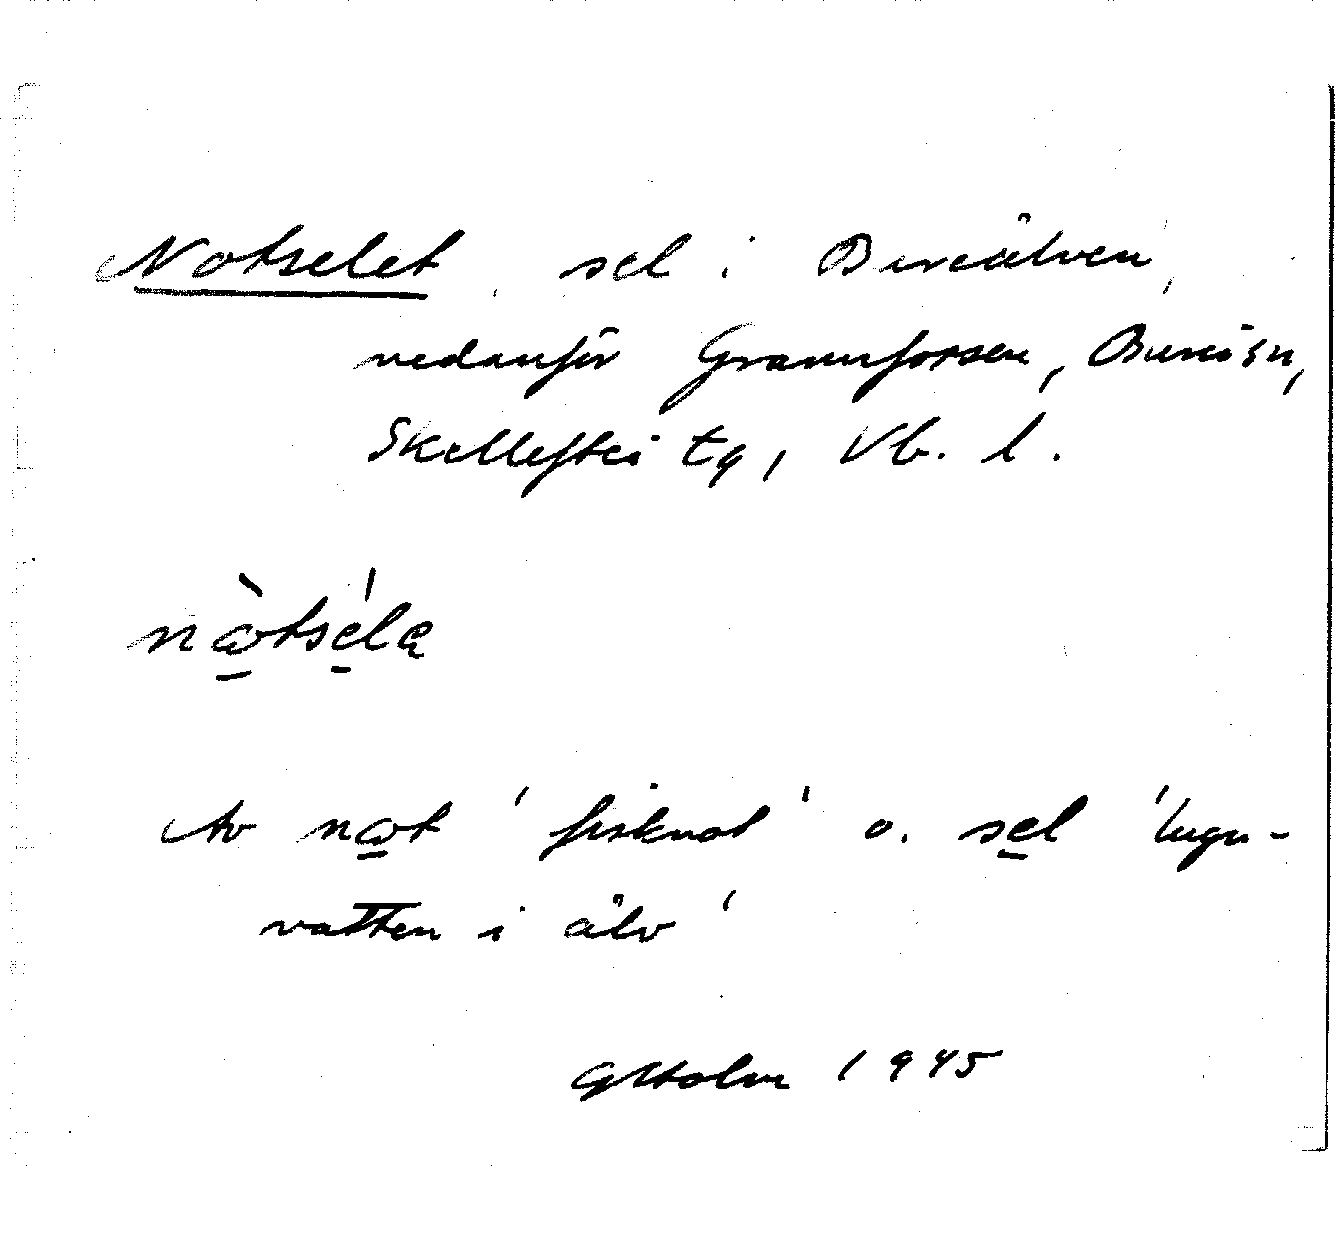 Notselet, sel i Bureälven,
nedanför Grannforsen, Bureå sn,
Skellefteå tg, Vb. l.
nὼ̲tsé̲lą
Av nω̲t 'fisknot' o. se̲l 'lugn-
vatten i älv'
GHolm 1945